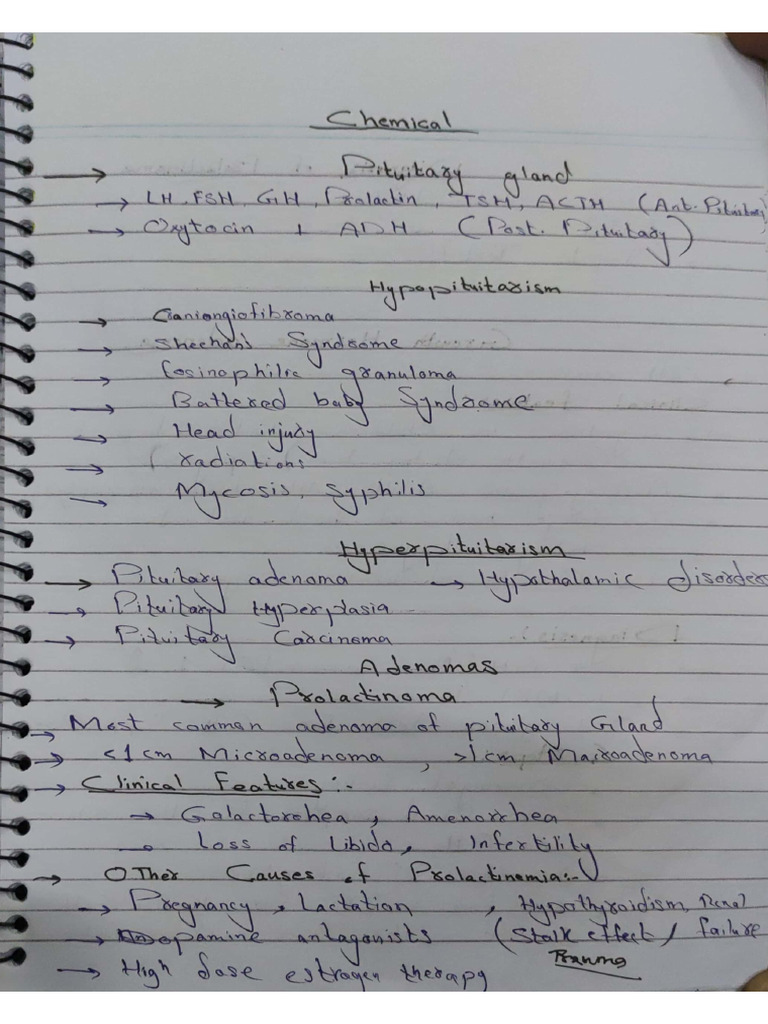 Chemical
→ Pituitary gland
→ LH, FSH, GH, Prolactin, TSH, ACTH (Ant. Pituitary)
→ Oxytocin + ADH (Post. Pituitary)
Hypopituitarism
→ Caniongiofibroma
→ Sheehan's Syndrome
→ Eosinophilic granuloma
→ Battered baby Syndrome
→ Head injury
→ radiations
→ Mycosis, Syphilis
Hyperpituitarism
→ Pituitary adenoma → Hypothalamic disorders
→ Pituitary Hyperplasia
→ Pituitary Carcinoma
Adenomas
→ Prolactinoma
→ Most common adenoma of pituitary Gland
→ <1cm Microadenoma, >1cm, Macroadenoma
→ Clinical Features:-
→ Galactorrhea, Amenorrhea
→ Loss of Libido, Infertility
→ Other Causes of Prolactinemia:-
→ Pregnancy, Lactation, Hypothyroidism, Renal
→ Dopamine antagonists (Stalk effect) failure
→ High dose estrogen therapy